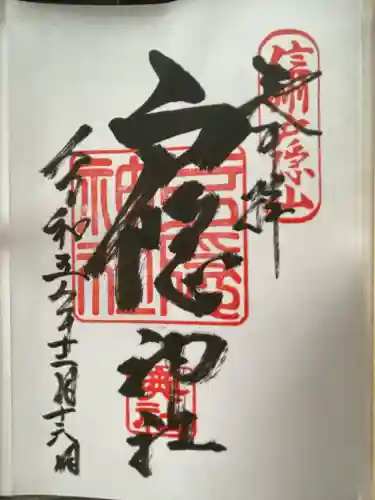 奉拝
信州戸隠山
戸隠神社
戸隠神社
令和五年十二月十六日